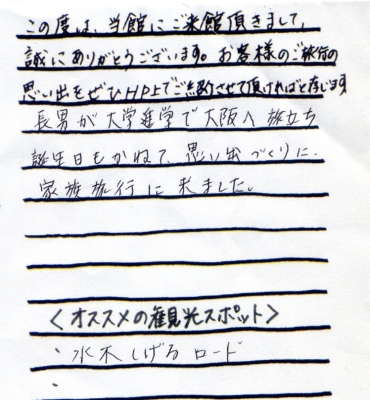 この度は、当館にご来館頂きまして、
誠にありがとうございます。お客様のご旅行の
思い出をぜひHP上でご紹介させて頂ければと存じます
長男が大学進学で大阪へ旅立ち
誕生日もかねて、思い出づくりに、
家族旅行に来ました。
＜オススメの観光スポット＞
・水木しげるロード
・